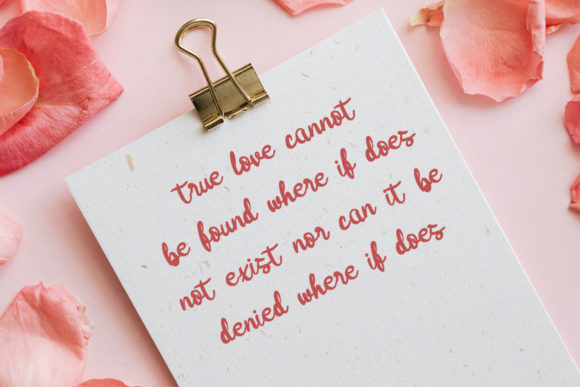 true love cannot
be found where if does
not exist nor can it be
denied where if does